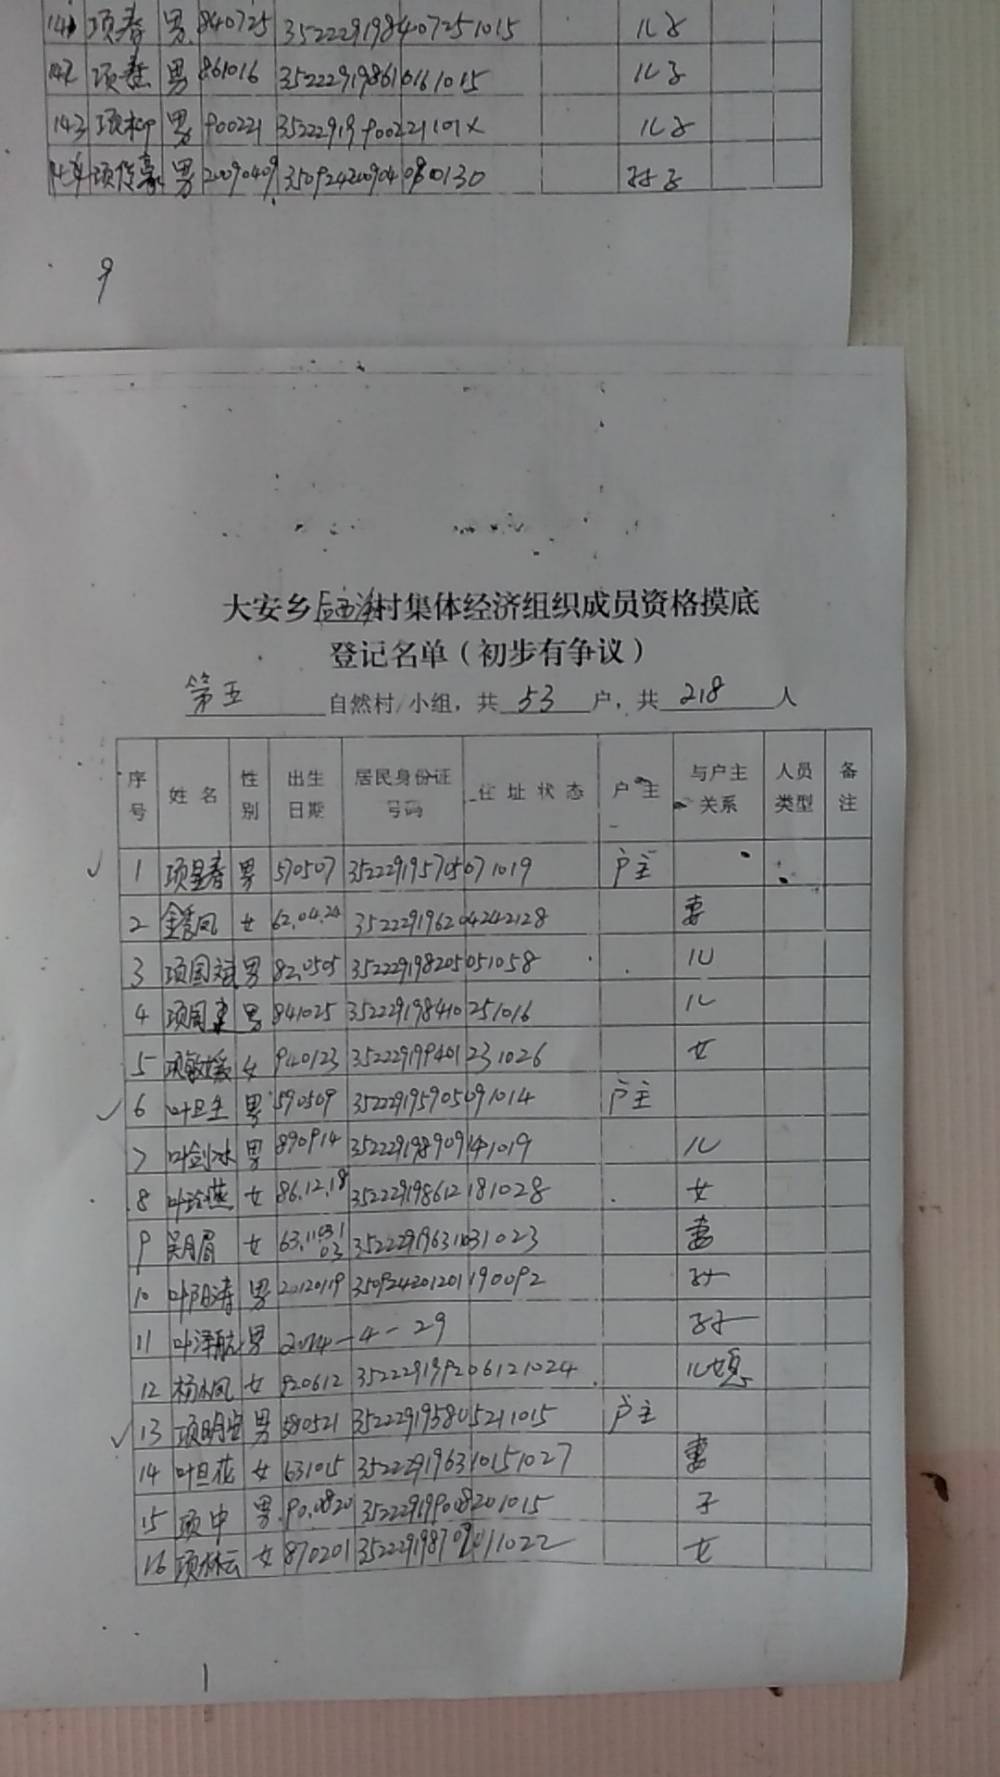 141 项春 男 840725 352229198407251015 儿子
142 项 男 861016 352229198610161015 儿子
143 项 男 900221 35222919900221101X 儿子
144 项传豪 男 20090409 350924200904080130 孙子
9
大安乡后西洋村集体经济组织成员资格摸底
登记名单（初步有争议）
第五 自然村/小组，共 53 户，共 218 人
序号 姓名 性别 出生日期 居民身份证号码 住址状态 户主 与户主关系 人员类型 备注
1 项皇春 男 570507 352229195705071019 户主
2 凤 女 62.04.24 352229196204242128 妻
3 项国斌 男 82.0505 352229198205051058 儿
4 项国 男 841025 352229198410251016 儿
5 项敏媛 女 940123 352229199401231026 女
6 叶旦生 男 590509 352229195905091014 户主
7 叶剑冰 男 890914 352229198909141019 儿
8 叶玲燕 女 86.12.18 352229198612181028 女
9 吴月眉 女 63.1103 352229196311031023 妻
10 叶阳涛 男 20120119 350924201201190092 孙
11 叶泽航 男 2014-4-29 孙
12 杨凤 女 920612 352229199206121024 儿媳
13 项明 男 580521 352229195805211015 户主
14 叶旦花 女 631015 352229196310151027 妻
15 项中 男 90.0820 352229199008201015 子
16 项林云 女 870201 352229198702011022 女
1